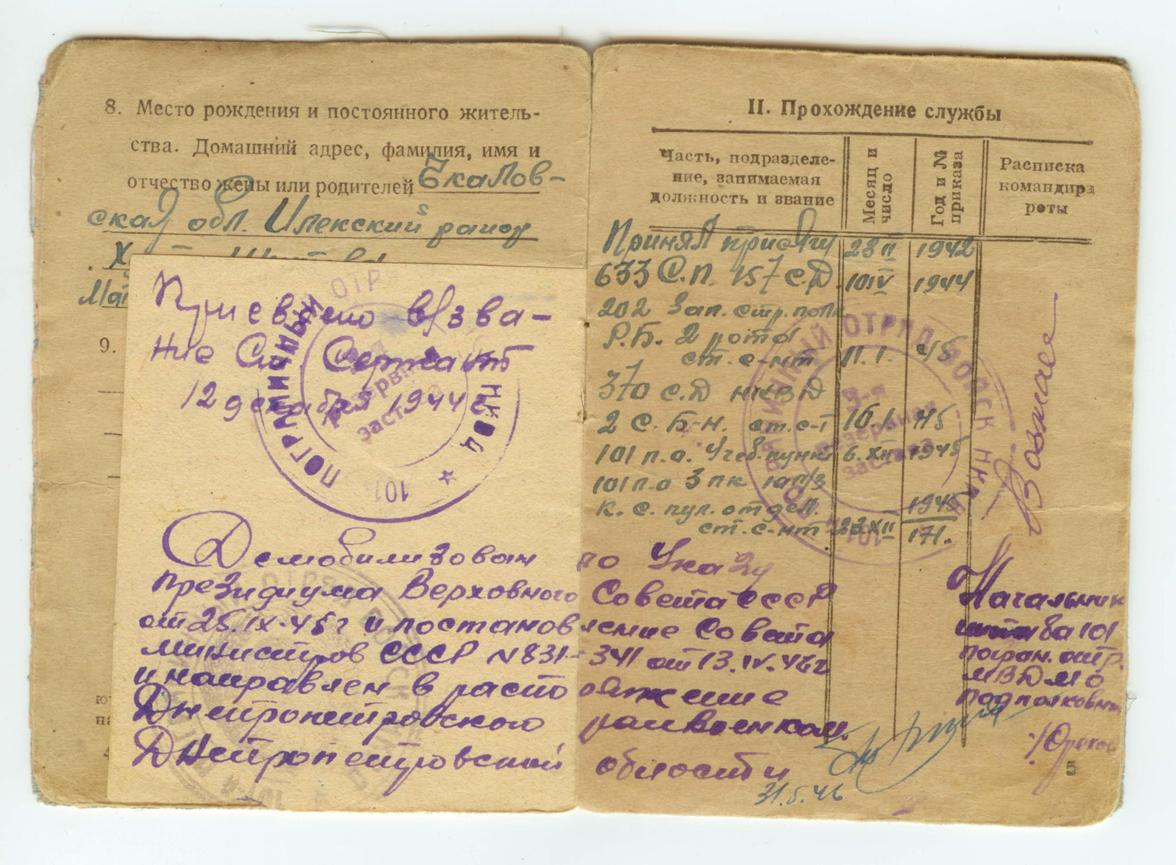 8. Место рождения и постоянного житель-
ства. Домашний адрес, фамилия, имя и
отчество жены или родителей Чкалов-
ская обл. Илекский район
9.
Присвоено в/зва-
ние Ст. Сержант
12 декабря 1944г
101 ПОГРАНИЧНЫЙ ОТР НКВД
резервная
застава
Демобилизован
Президиума Верховного
от 25.IX.45г и постанов
министров СССР N831-
и направлен в распо
Днепропетровского
Днепропетровской
II. Прохождение службы
Часть, подразделе-
ние, занимаемая
должность и звание
Месяц и
число
Год и №
приказа
Расписка
командира
роты
Принял присягу 23 II 1942
633 С.П. 157 С.Д. 10 IV 1944
202 Зап. стр. полк
Р.Б. 2 роты
ст. с-нт 11.I. 45
370 С.Д НКВД
2 С.Б-н. ст. с-т 16.I. 45
101 п.о. Учеб. пункт 6. XII 1945
101 п.о 3 пк
к. с. пул. отдел. 1945
ст. с-нт 22 XII 171.
ПОГРАНИЧНЫЙ ОТРЯД ВОЙСК НКВД
резервная
застава
по Указу
Совета СССР
ление Совета
341 от 13.IV.46г
оряжение
райвоенком.
области
31.5.46
Начальник
штаба 101
погран. отр.
МВД
подполковник